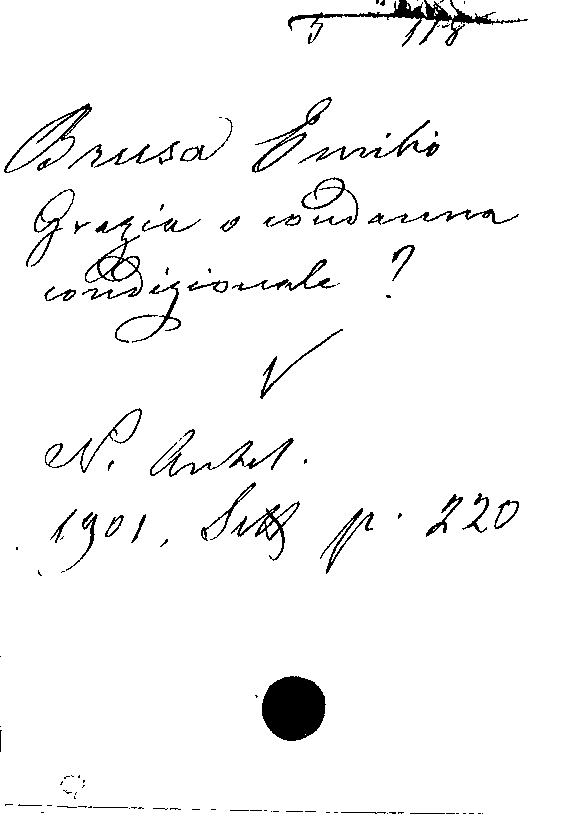 5 118
Brusa Emilio
Grazia o condanna
condizionale ?
N. Antol.
1901. Sett p. 220